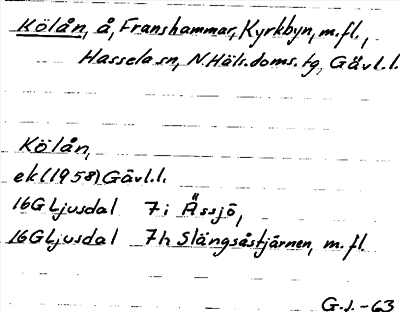 Kölån, å, Franshammar, Kyrkbyn, m.fl.,
Hassela sn, N.Häls.doms.tg, Gävl.l.
Kölån,
ek(1958)Gävl.l.
16G Ljusdal 7i Ässjö,
16G Ljusdal 7h Slängsåstjärnen, m.fl.
G.J.-63